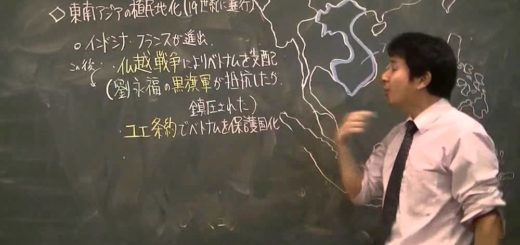 ◇東南アジアの植民地化(19世紀に進行)
○インドシナ:フランスが進出。
この後…仏越戦争によりベトナムを支配
(劉永福の黒旗軍が抵抗したが
鎮圧された)
・ユエ条約でベトナムを保護国化